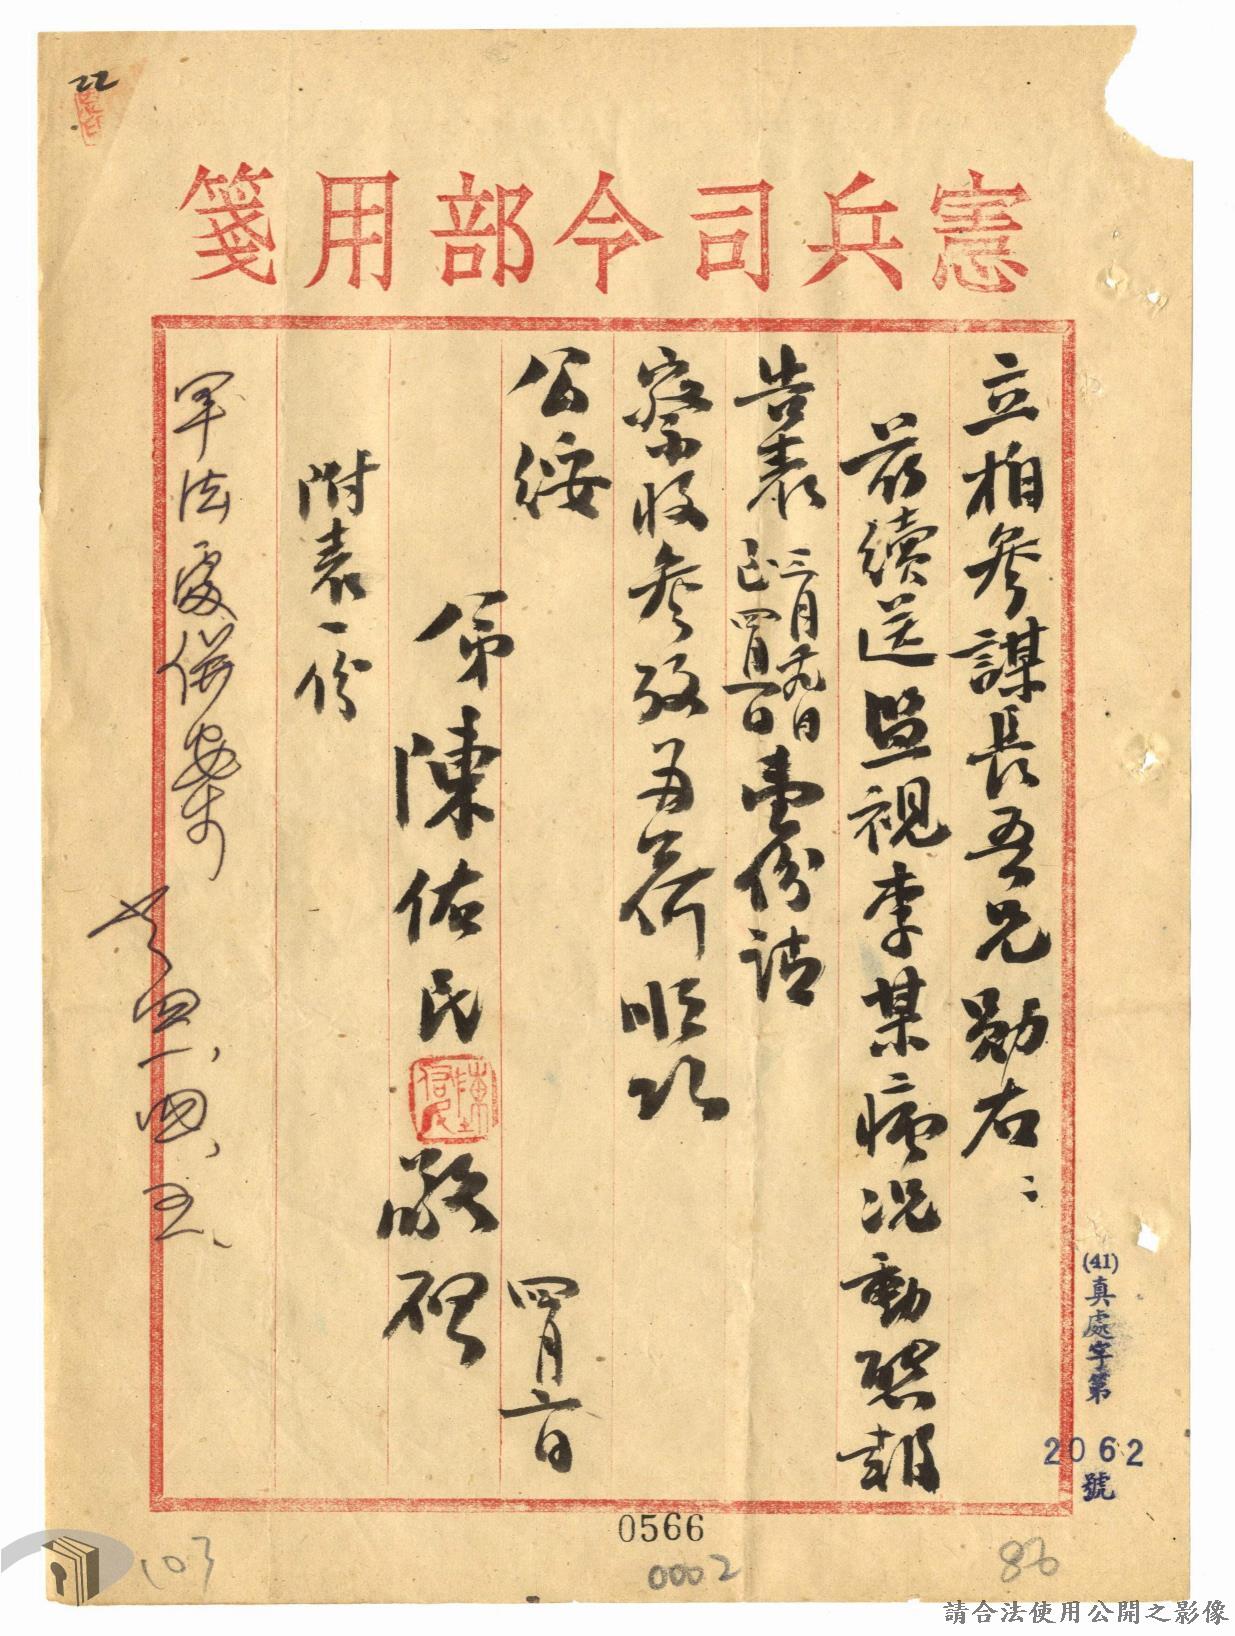 22
憲兵司令部用箋
立柏參謀長吾兄勛右：
茲續送監視李某病況動態報
告表三月廿九日
至四月一日壹份請
察收參攷為荷順頌
公綏
弟陳佑民敬啓
四月二日
附表一份
軍法處併案
四一、四、五、
(41)真處字第2062號
0566
0002
86
103
請合法使用公開之影像